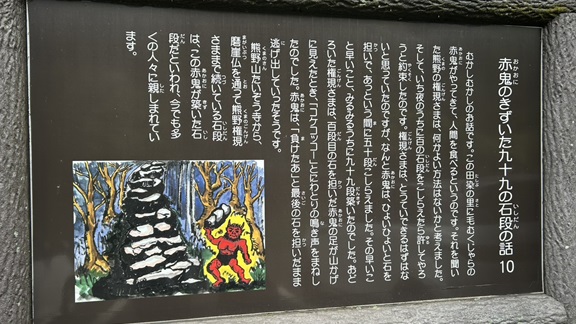 赤鬼のきずいた九十九の石段の話 10
むかしむかしのお話です。この田染の里に毛むくじゃらの
赤鬼がやってきて、人間を食べるというのです。それを聞い
た熊野の権現さまは、何かよい方法はないかと考えました。
そして、いち夜のうちに百の石段をこしらえたら許してやろ
うと約束したのです。権現さまは、とうていできるはずはな
いと思っていたのですが、なんと赤鬼は、ひょいひょいと石を
担いで、あっという間に五十段こしらえました。その早いこ
と早いこと、みるみるうちに九十九段築いたのでした。おど
ろいた権現さまは、百段目の石を担いだ赤鬼の足が山かげ
に見えたとき、「コケコッコー」とにわとりの鳴き声をまねし
たのでした。赤鬼は、「負けたあ」と最後の石を担いだまま
逃げ出していったそうです。
熊野山たいぞう寺から、
磨崖仏を通って熊野権現
さままで続いている石段
は、この赤鬼が築いた石
段だといわれ、今でも多
くの人々に親しまれてい
ます。